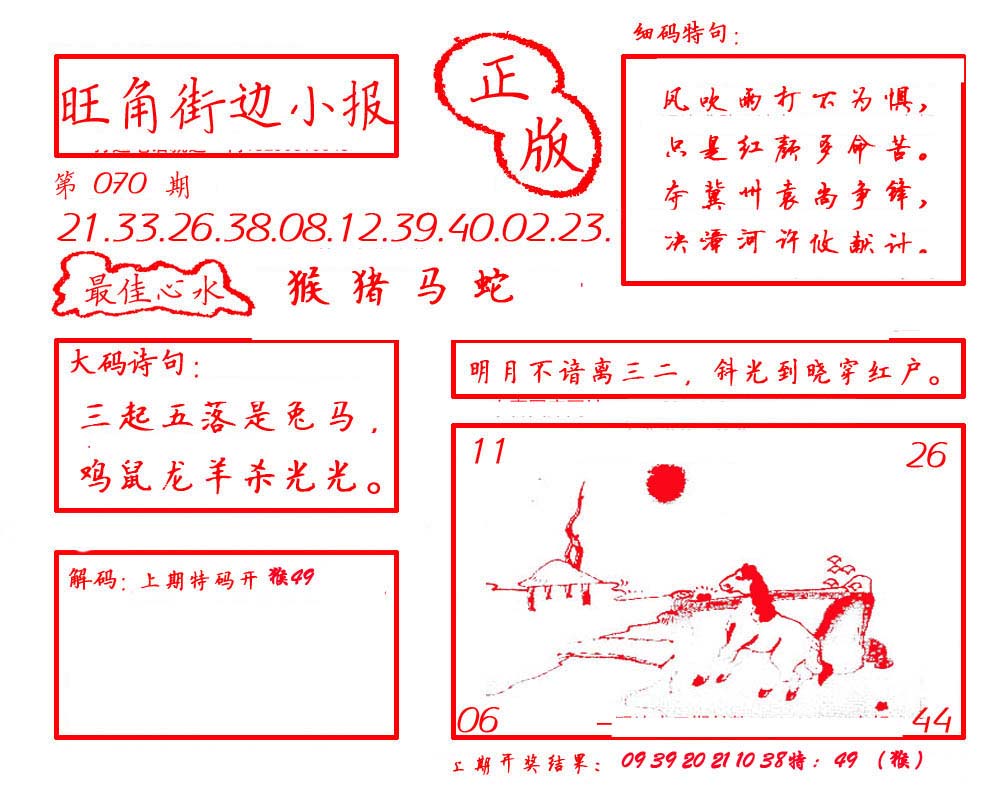 旺角街边小报
正
版
第 070 期
21.33.26.38.08.12.39.40.02.23.
最佳心水
猴 猪 马 蛇
细码特句：
风吹雨打不为惧，
只是红颜多命苦。
夺冀州袁尚争锋，
决漳河许攸献计。
大码诗句：
三起五落是兔马，
鸡鼠龙羊杀光光。
明月不谙离三二，斜光到晓穿红户。
11
26
06
44
解码：上期特码开 猴49
上期开奖结果： 09 39 20 21 10 38特：49 （猴）